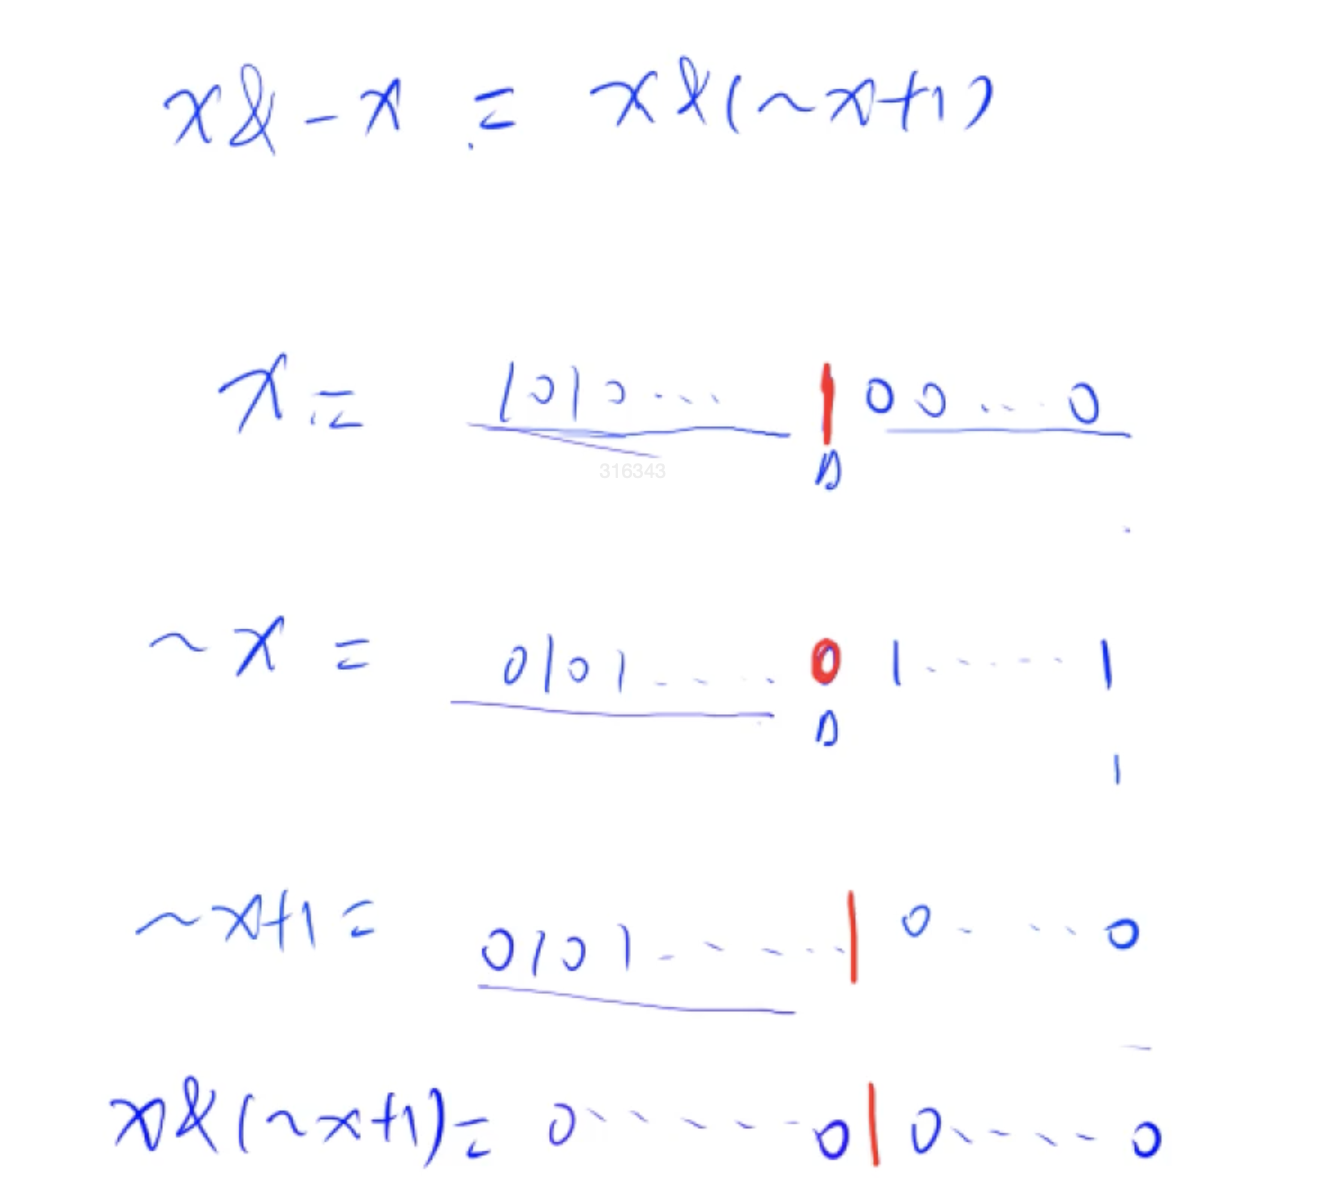 x&-x = x&(~x+1)
x= 1010... 1 00...0
316343
~x = 0101.... 0 1......1
1
~x+1= 0101......1 0....0
x&(~x+1)= 0......0 1 0.....0